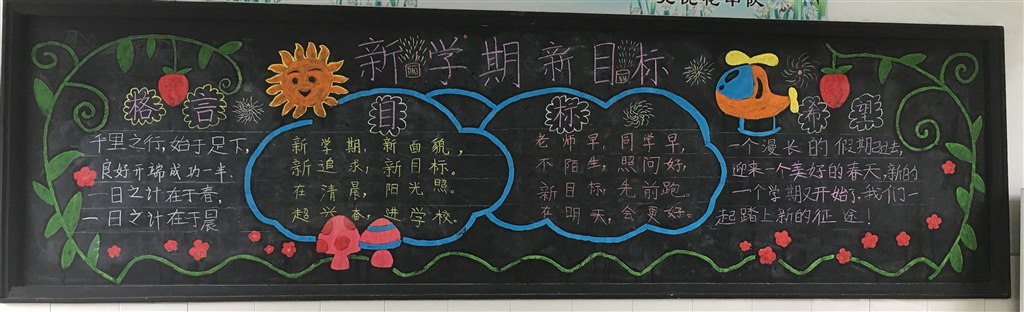 新学期新目标
格言
千里之行,始于足下,
良好开端成功一半.
一日之计在于春,
一日之计在于晨
目
新学期,新面貌,
新追求,新目标。
在清晨,阳光照。
超兴奋,进学校。
标
老师早,同学早,
不陌生,照问好,
新目标,先前跑。
在明天,会更好。
希望
一个漫长的假期过去,
迎来一个美好的春天,新的
一个学期又开始了,我们一
起踏上新的征途!